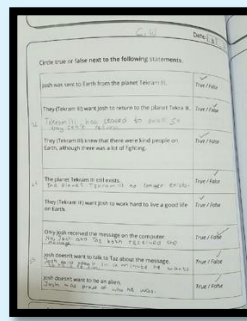 C.W
Date:
Circle true or false next to the following statements.
Josh was sent to Earth from the planet Tekram III.
True / False
They (Tekram III) want Josh to return to the planet Tekra III.
True / False
Tekram III has ceased to exist so
They (Tekram III) knew that there were kind people on
Earth, although there was a lot of fighting.
True / False
The planet Tekram III still exists.
True / False
The planet Tekram III no longer exists.
They (Tekram III) want Josh to work hard to live a good life
on Earth.
True / False
Only Josh received the message on the computer.
True / False
Josh and Taz both received the
message
Josh doesn't want to talk to Taz about the message.
True / False
Josh doesn't want to be an alien.
True / False
Josh was proud of who he was.